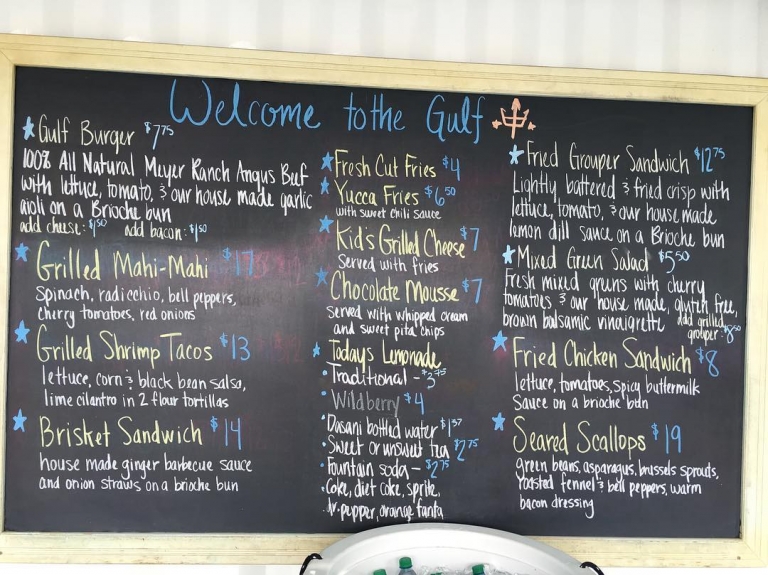 Welcome to the Gulf
Gulf Burger $7.75
100% All Natural Meyer Ranch Angus Beef
with lettuce, tomato, & our house made garlic
aioli on a Brioche bun
add cheese: $1.50 add bacon: $1.50
Grilled Mahi-Mahi $17
Spinach, radicchio, bell peppers,
cherry tomatoes, red onions
Grilled Shrimp Tacos $13
lettuce, corn & black bean salsa,
lime cilantro in 2 flour tortillas
Brisket Sandwich $14
house made ginger barbecue sauce
and onion straws on a brioche bun
Fresh Cut Fries $4
Yucca Fries $6.50
with sweet chili sauce
Kid's Grilled Cheese $7
Served with fries
Chocolate Mousse $7
Served with whipped cream
and sweet pita chips
Todays Lemonade
Traditional - $3.75
Wildberry $4
Dasani bottled water $1.37
Sweet or unsweet tea $2.75
Fountain soda - $2.75
Coke, diet coke, sprite,
dr. pepper, orange fanta
Fried Grouper Sandwich $12.75
Lightly battered & fried crisp with
lettuce, tomato, & our house made
lemon dill sauce on a Brioche bun
Mixed Green Salad $5.50
Fresh mixed greens with cherry
tomatoes & our house made, gluten free,
brown balsamic vinaigrette add grilled
grouper: $8.50
Fried Chicken Sandwich $8
lettuce, tomatoes, spicy buttermilk
Sauce on a brioche bun
Seared Scallops $19
green beans, asparagus, brussels sprouts,
roasted fennel & bell peppers, warm
bacon dressing